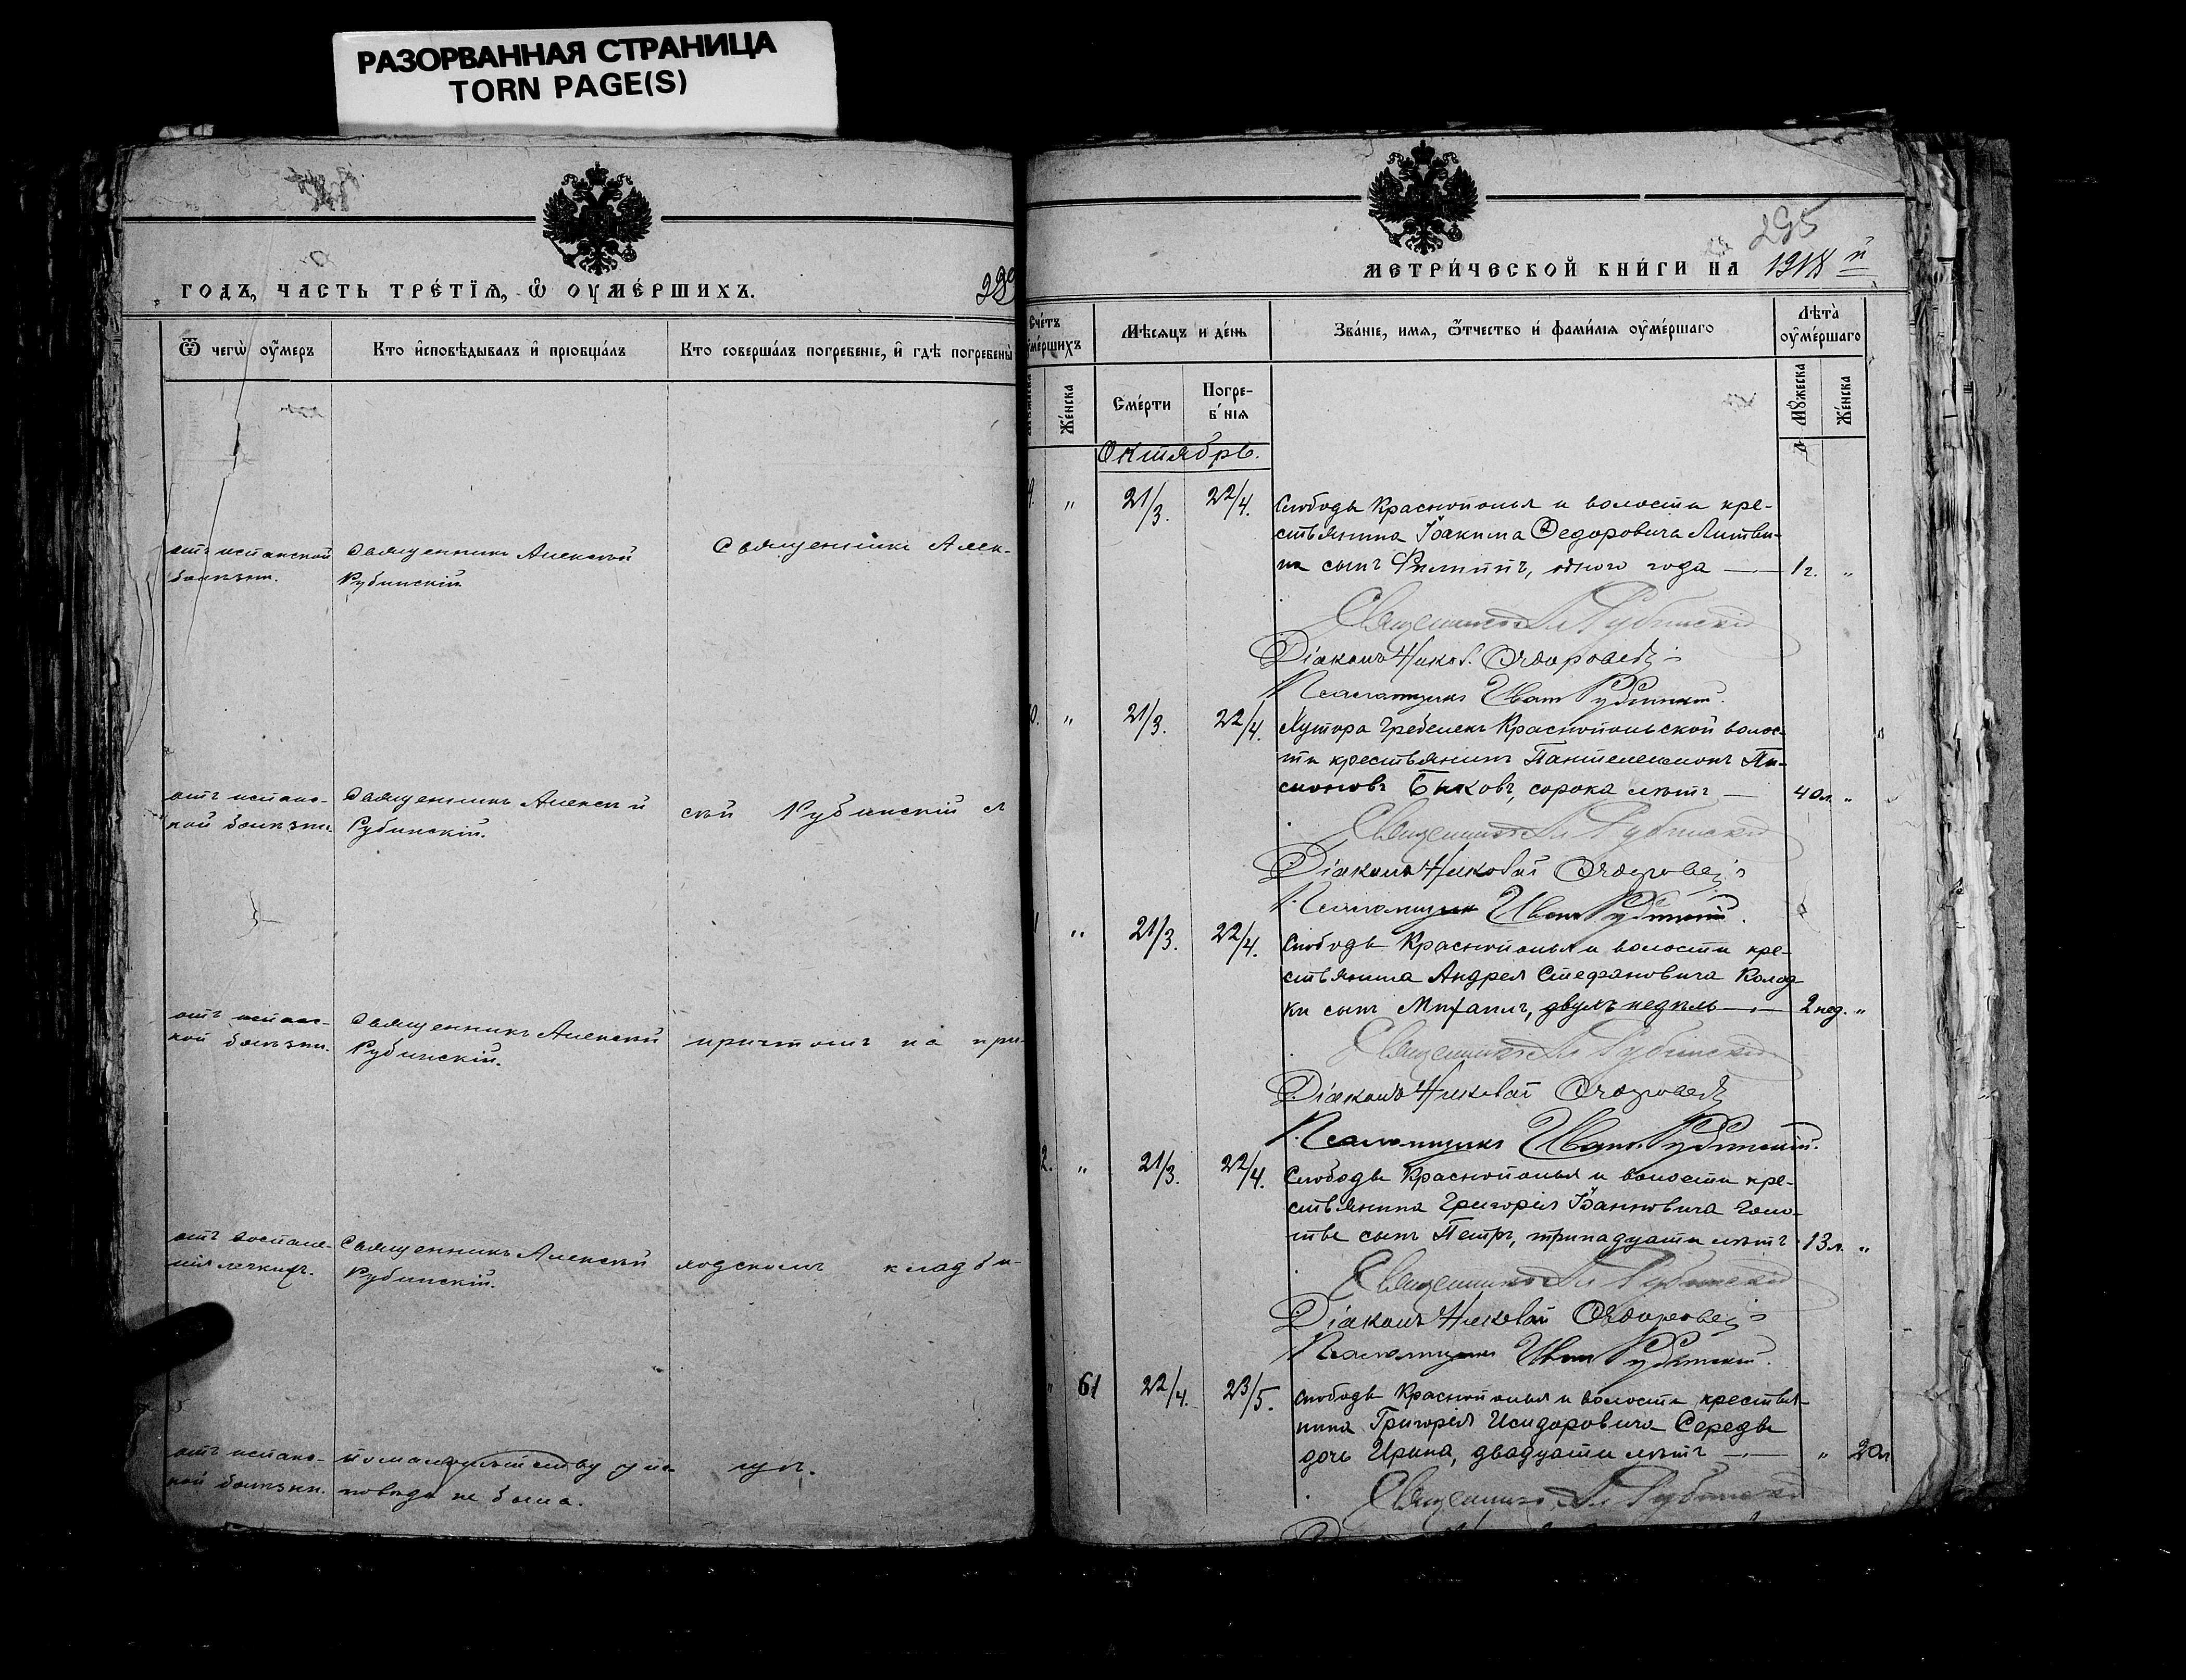 РАЗОРВАННАЯ СТРАНИЦА
TORN PAGE(S)
ГОДЪ, ЧАСТЬ ТРЕ́ТІѦ, Ѡ҆ ОУМЕ́РШИХЪ.
Ѿ чегѡ̀ оу҆́меръ
Кто и҆сповѣ́дывалъ и҆ прїѡбща́лъ
Кто соверша́лъ погребе́нїе, и҆ гдѣ̀ погребены̀
отъ испанской
болѣзни.
Священникъ Алексѣй
Рубинскій
Священникъ Алек-
отъ испанс-
кой болѣзни.
Священникъ Алексѣй
Рубинскій.
сѣй Рубинскій
отъ испанс-
кой болѣзни.
Священникъ Алексѣй
Рубинскій.
причтомъ на при-
отъ воспале-
нія легкихъ.
Священникъ Алексѣй
Рубинскій.
ходскомъ кладби-
отъ испанс-
кой болѣзни.
не было.
щѣ.
МЕТРИ́ЧЕСКОЙ КНИ́ГИ НА 1918 й
295
Сче́тъ оуме́ршихъ
Мѣ́сѧцъ и де́нь
Зва́нїе, имѧ, ѻ҆́тчество и҆ фами́лїѧ оу҆ме́ршаго
Лѣта̀ оу҆ме́ршаго
Же́нска
Сме́рти
Погре-
б нїѧ
Мꙋ́жеска
Же́нска
Октябрь.
„ 21/3. 22/4. Слободы Краснополья и волости кре-
стьянина Іоакима Федоровича Литви-
на сынъ Филиппъ, одного года — 1 г. „
Священникъ Ал Рубинскій
Діаконъ Никол.
Псаломщикъ Иванъ Рубинскій.
„ 21/3. 22/4. Хутора Гребеникъ Краснопольской волос-
ти крестьянинъ Пантелеимонъ
Быковъ, сорока лѣтъ — 40 л. „
Священникъ Ал Рубинскій
Діаконъ Николай
Псаломщикъ Иванъ Рубинскій.
„ 21/3. 22/4. Слободы Краснополья и волости кре-
стьянина Андрея Стефановича Колод-
ки сынъ Михаилъ, двухъ недѣль — 2 нед. „
Священникъ Ал Рубинскій
Діаконъ Николай
Псаломщикъ Иванъ Рубинскій.
2. „ 21/3. 22/4. Слободы Краснополья и волости кре-
стьянина Григорія Іоанновича
сынъ Петръ, тринадцати лѣтъ 13 л. „
Священникъ Ал Рубинскій
Діаконъ Николай
Псаломщикъ Иванъ Рубинскій.
„ 61 22/4. 23/5. Слободы Краснополья и волости крестья-
нина Григорія Исидоровича Середы
дочь Ирина, двадцати лѣтъ — „ 20 л
Священникъ Ал Рубинскій